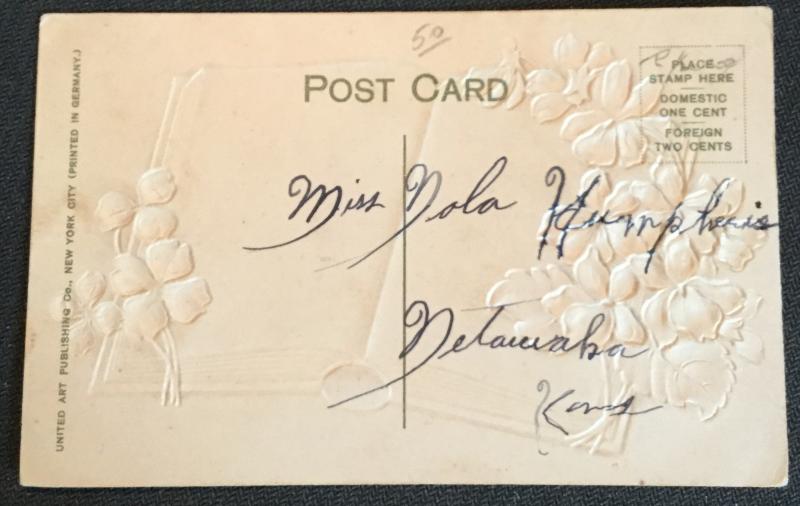 50
POST CARD
PLACE
STAMP HERE
DOMESTIC
ONE CENT
FOREIGN
TWO CENTS
Miss Nola Humphreis
Netawaka
Kans
UNITED ART PUBLISHING CO., NEW YORK CITY (PRINTED IN GERMANY.)